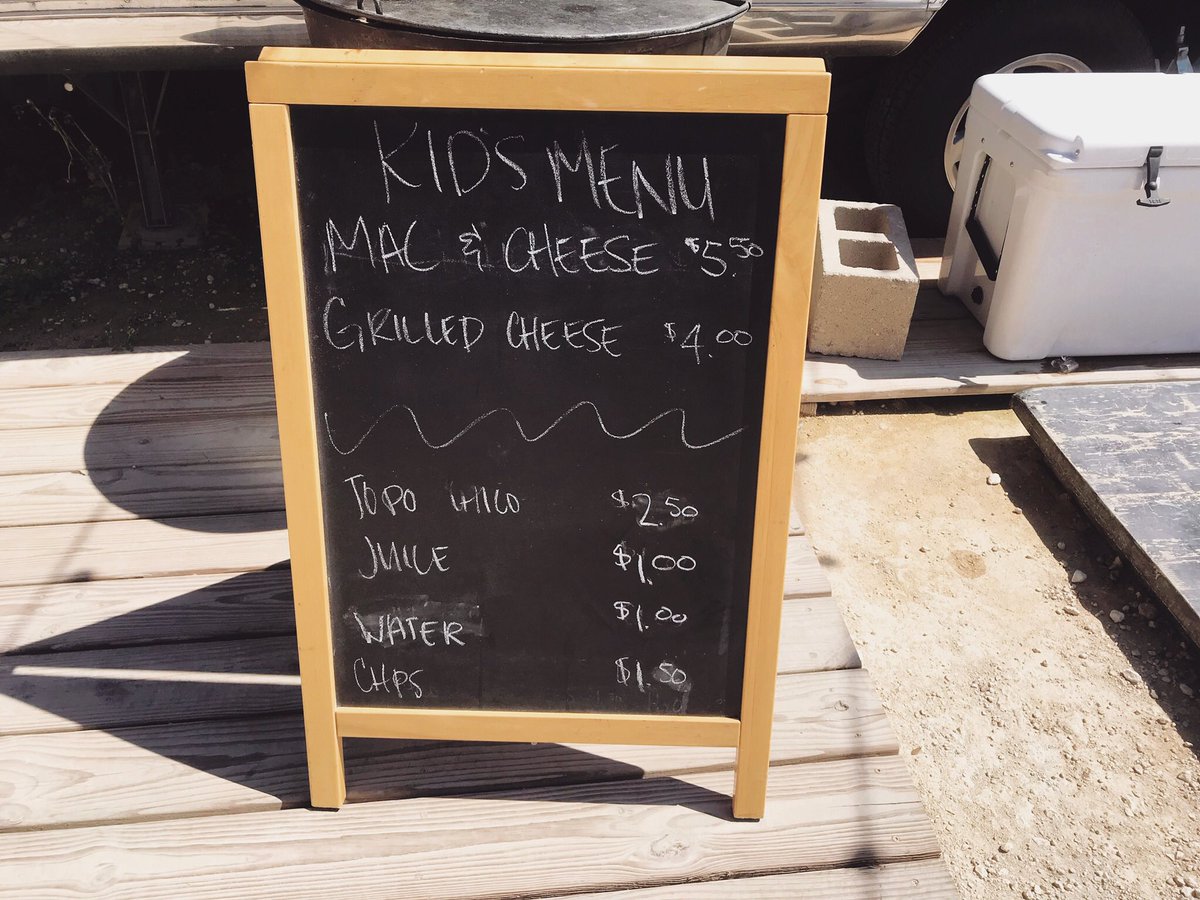 KID'S MENU
MAC & CHEESE $5.50
GRILLED CHEESE $4.00
TOPO CHICO $2.50
JUICE $1.00
WATER $1.00
CHIPS $1.50